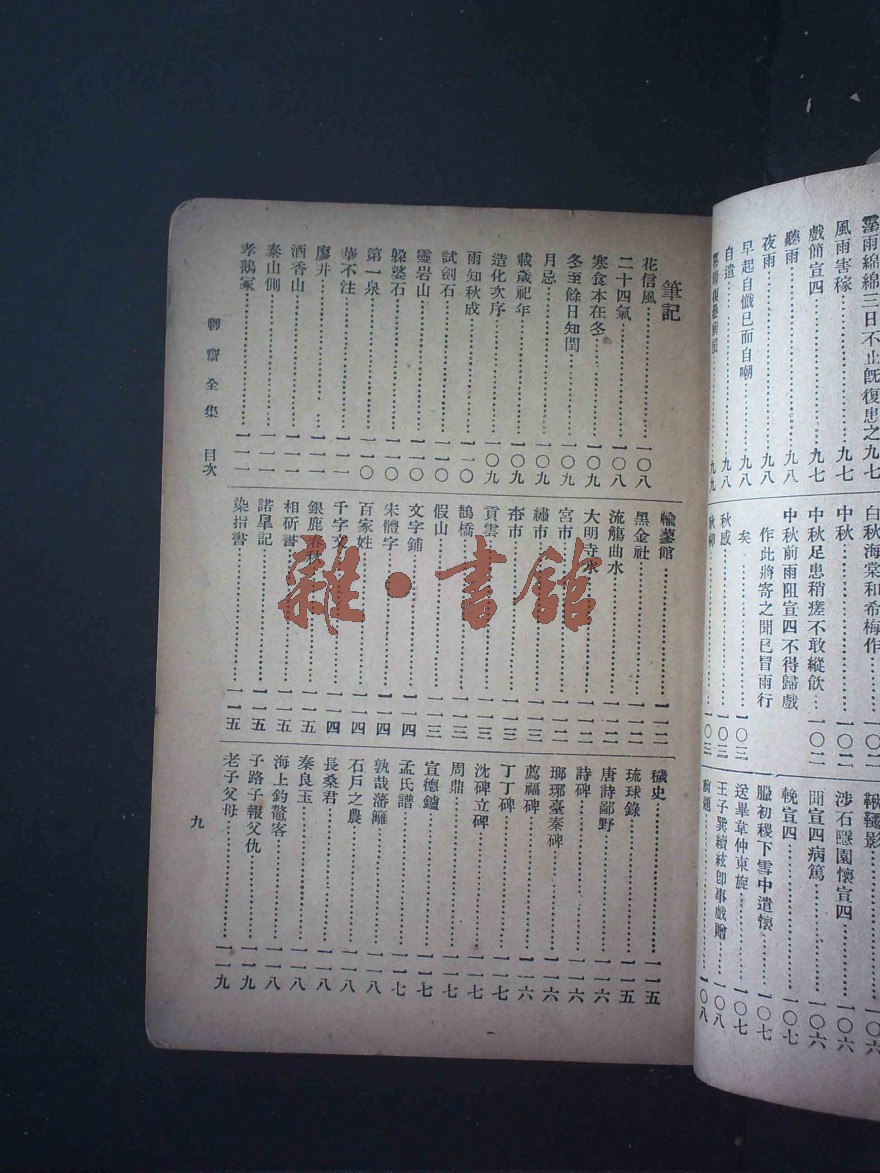 霪雨綿綿三日不止旣復患之九七
風雨害稼……九七
戲簡宣四……九七
聽雨……九八
夜雨……九八
早起自懺已而自嘲……九八
自遣……九八
白秋海棠和希梅作……一〇二
中秋……一〇二
中秋足患稍瘥不敢縱飲……一〇二
中秋前雨阻宣四不得歸戲
作此將寄之聞已冒雨行
矣……一〇三
秋感……一〇三
秋柳……一〇三
鞦韆影……一〇六
涉石隱園懷宣四……一〇六
聞宣四病篤……一〇六
輓宣四……一〇七
臘初稷下雪中遣懷……一〇七
送畢韋仲東旋……一〇七
王子巽續絃卽事戲贈……一〇八
筆記
花信風……一〇八
二十四氣……一〇八
寒食本在冬……一〇九
冬至餘日知閏……一〇九
月忌……一〇九
載歲祀年……一〇九
造化次序……一〇九
雨知秋成……一一〇
試劍石……一一〇
靈岩山……一一〇
躲婆石……一一〇
第一泉……一一〇
華不注……一一一
廖井……一一一
酒香山……一一一
泰山側……一一一
孝鵝冢……一一一
輸蓼館……一一二
黑金社……一一二
流觴曲水……一一二
大明寺水……一一二
宮市……一一二
繡市……一一三
帟市……一一三
貢雲……一一三
鵲橋……一一三
假山……一一三
文字鋪……一一四
朱體字……一一四
百家姓……一一四
千字文……一一四
銀鹿春秋……一一五
相斫書……一一五
諾皐記……一一五
染指書……一一五
穢史……一一五
琉球錄……一一五
唐詩鄙野……一一六
詩碑……一一六
瑯琊臺秦碑……一一六
薦福碑……一一六
丁丁碑……一一七
沈碑立碑……一一七
周鼎……一一七
宣德鑪……一一七
孟氏譜……一一七
孰哉藩籬……一一八
石戶之農……一一八
長桑君……一一八
秦良玉……一一八
海上釣鼇客……一一八
子路子報父仇……一一九
老子父母……一一九
聊齋全集 目次
九
雜·書館